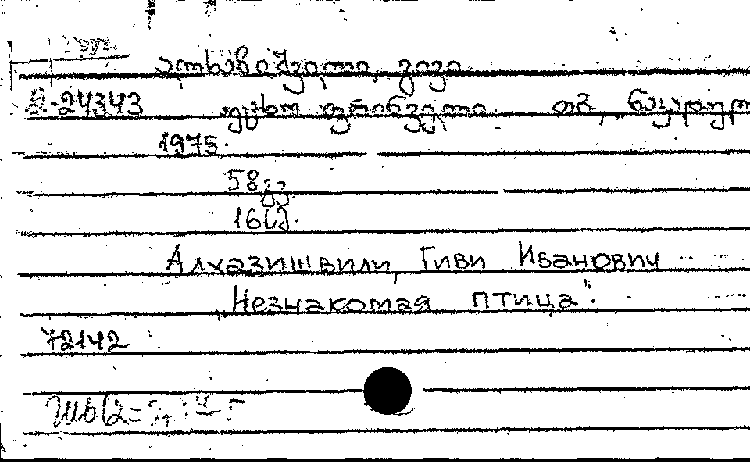 ალხაზიშვილი, გივი
24343 უცხო ფრინველი. თბ., ნაკადული
1975.
58გვ.
16ც.
Алхазишвили, Гиви Иванович
„Незнакомая птица".
72142